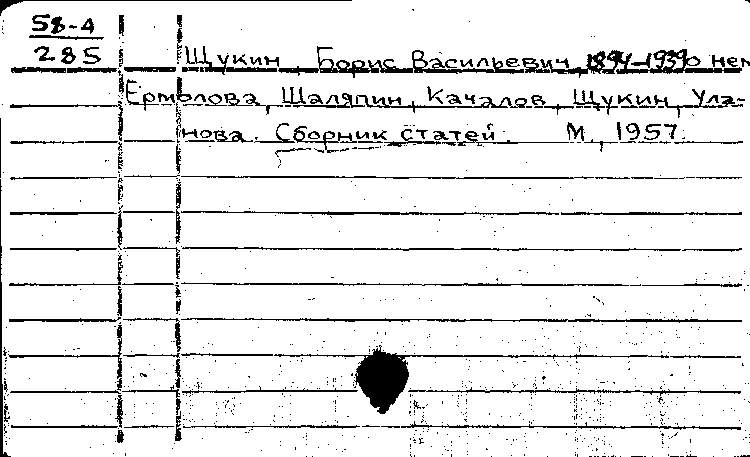 58-4
285
Щукин, Борис Васильевич, 1894-1939 о нем
Ермолова, Шаляпин, Качалов, Щукин, Ула-
нова. Сборник статей. М., 1957.